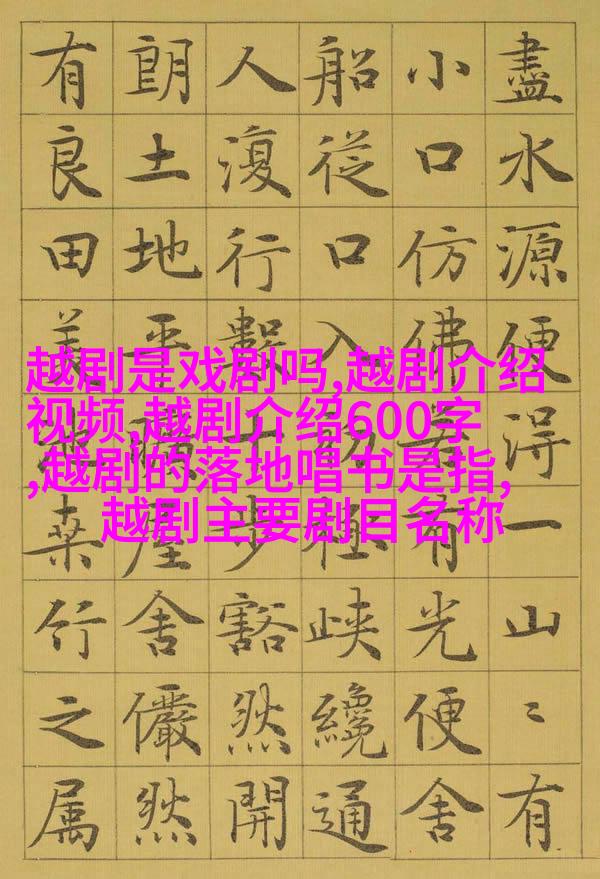 越剧是戏剧吗,越剧介绍
视频,越剧介绍600字
,越剧的落地唱书是指,
越剧主要剧目名称
盡水源便得一山〻有
小口仿佛若有光便舍
船從口入初極峽纔通
人復行數十步豁然開
朗土地平曠屋舍儼然
有良田美池桑竹之属